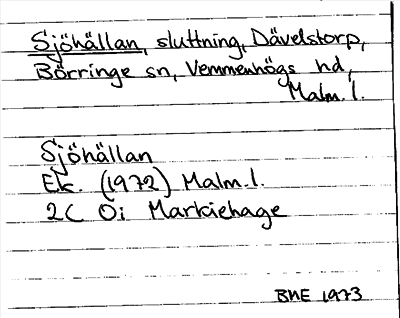 Sjöhällan, sluttning, Dävelstorp,
Börringe sn, Vemmenhögs hd,
Malm. l.
Sjöhällan
Ek. (1972) Malm. l.
2C Öi Markiehage
BNE 1973